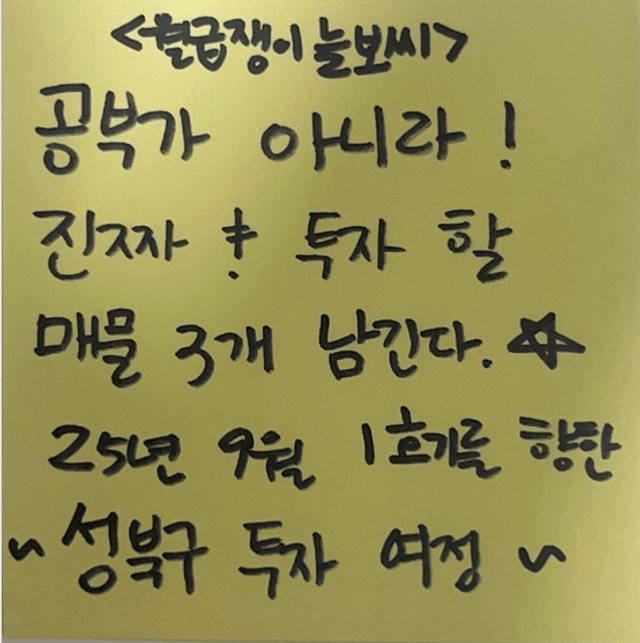 <월급쟁이 늘보씨>
공부가 아니라!
진짜 투자 할
매물 3개 남긴다. ☆
25년 9월 1호기를 향한
~ 성북구 투자 여정 ~